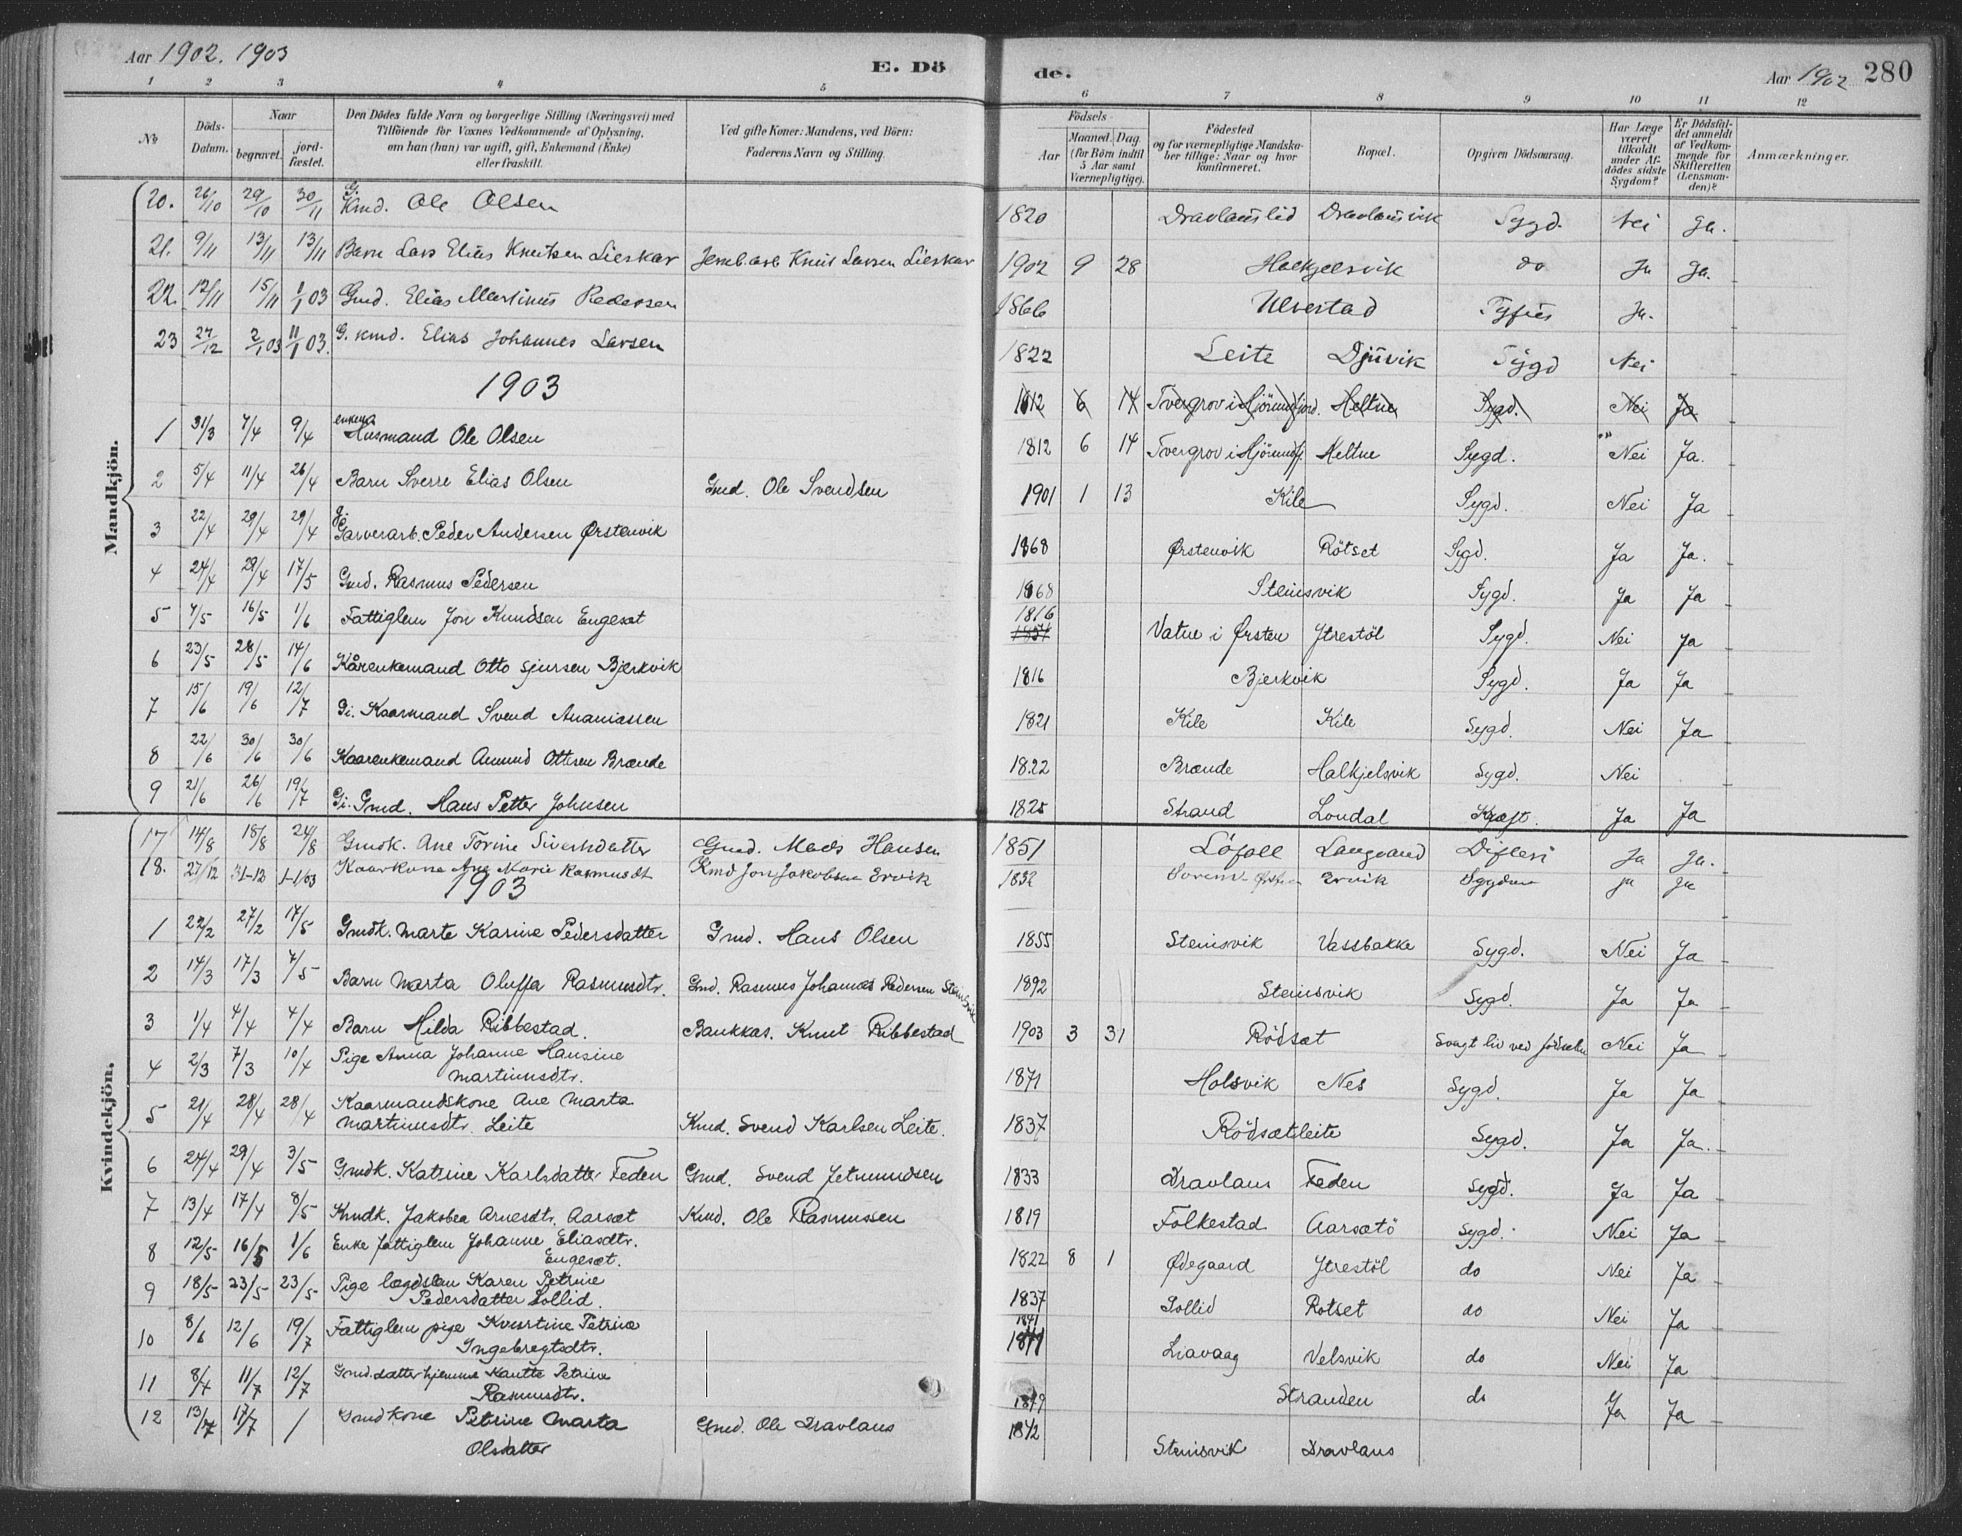 Aar 1902. 1903 E. Dö de. Aar 1902 280
1 2 3 4 5 6 7 8 9 10 11 12
No Döds-Datum. Naar begravet. jord-fæstet. Den Dödes fulde Navn og borgerlige Stilling (Næringsvei) med Tilföiende for Voxnes Vedkommende af Oplysning, om han (hun) var ugift, gift, Enkemand (Enke) eller fraskilt. Ved gifte Koner: Mandens, ved Börn: Faderens Navn og Stilling. Födsels Aar Maaned Dag (for Börn indtil 5 Aar samt Værnepligtige). Födested og for værnepligtige Mandskaber tillige: Naar og hvor konfirmeret. Bopæl. Opgiven Dödsaarsag. Har Læge været tilkaldt under Afdödes sidste Sygdom? Er Dödsfaldet anmeldt af Vedkommende for Skifteretten (Lensmanden)? Anmærkninger.
Mandkjön.
20. 26/10 29/10 30/11 G. Kmd. Ole Olsen 1820 Dravlauslid Dravlausvik Sygd. Nei Ja.
21. 9/11 13/11 13/11 Barn Lars Elias Knutsen Lieskar Jernb.arb Knut Larsen Lieskar 1902 9 28 Halkjelsvik do Ja Ja.
22. 12/11 15/11 1/1 03 Gmd. Elias Martinus Pedersen 1866 Ulvestad Tyfus Ja.
23 27/12 2/1 03 11/1 03. G. Kmd. Elias Johannes Larsen 1822 Leite Djuvik Sygd Nei
1903
1812 6 14 Tvergrov i Hjörundfjord. Heltne Sygd. Nei Ja
1 31/3 7/4 9/4 enkem. Husmand Ole Olsen 1812 6 14 Tvergrov i Hjörundfj. Heltne Sygd. Nei Ja.
2 5/4 11/4 26/4 Barn Sverre Elias Olsen Gmd. Ole Svendsen 1901 1 13 Kile Sygd. Nei Ja
3 22/4 29/4 29/4 g. Garverarb. Peder Andersen Ørstenvik 1868 Ørstenvik Rötset Sygd. Ja Ja.
4 24/4 29/4 17/5 Gmd. Rasmus Pedersen 1868 Steinsvik Sygd. Ja Ja
5 7/5 16/5 1/6 Fattiglem Jon Knudsen Engeset 1816 Vatne i Ørsten Ytrestöl Sygd. Nei Ja
6 23/5 28/5 14/6 Kårenkemand Otto Sjursen Bjerkvik 1816 Bjerkvik Sygd. Ja Ja
7 15/6 19/6 12/7 Gi. Kaarmand Svend Ananiassen 1821 Kile Kile Sygd. Nei Ja
8 22/6 30/6 30/6 Kaarenkemand Amund Ottesen Brænde 1822 Brænde Halkjelsvik Sygd. Nei
9 21/6 26/6 19/7 Gi. Gmd. Hans Petter Johnsen 1825 Strand Loudal Kræft. Ja Ja
Kvindekjön.
17 14/8 18/8 24/8 Gmdk. Ane Torine Sivertsdatter Gmd. Mads Hansen 1851 Löfoll Langvand Difteri Ja Ja.
18. 27/12 31-12 1-1/03 Kaarkone Ane Marie Rasmusdt Kmd Jon Jakobsen Ervik 1832 Ervik Sygdom Ja Ja
1903
1 22/2 27/2 17/5 Gmdk. Marte Karine Pedersdatter Gmd. Hans Olsen 1855 Steinsvik Vassbakke Sygd. Nei Ja
2 14/3 17/3 7/5 Barn Marta Oluffa Rasmusdtr. Gmd. Rasmus Johannes Pedersen Steinsvik 1892 Steinsvik Sygd. Ja Ja
3 1/4 4/4 4/4 Barn Hilda Ribbestad. Bankkas. Knut Ribbestad 1903 3 31 Rödsæt Svagt liv ved födselen Nei Ja
4 2/3 7/3 10/4 Pige Anna Johanne Hansine
Martinusdtr. 1871 Holsvik Nes Sygd. Ja Ja
5 21/4 28/4 28/4 Kaarmandskone Ane Marta
Martinusdtr. Leite Kmd. Svend Karlsen Leite. 1837 Rödsætleite Sygd. Ja Ja.
6 24/4 29/4 3/5 Gmdk. Katrine Karlsdatter Feden Gmd. Svend Jetmundsen 1833 Dravlaus Feden Sygd. Ja Ja
7 13/4 17/4 8/5 Kmdk. Jakobea Arnesdtr. Aarsæt Kmd. Ole Rasmussen 1819 Folkestad Aarsætö Sygd. Nei Ja
8 12/5 16/5 1/6 Enke fattiglem Johanne Eliasdtr.
Engesæt. 1822 8 1 Ødegaard Ytrestöl do Nei Ja
9 18/5 23/5 23/5 Pige lægdslem Karen Petrine
Pedersdatter Sollid. 1837 Sollid Rotset do Nei Ja
10 8/6 12/6 19/7 Fattiglem pige Petrine
Ingebregtsdtr. 1841 Liavaag Velsvik do Nei Ja
11 8/7 11/7 12/7 Gmd.datter hjemme Petrine
Rasmusdtr. 1879 Stranden do Ja Ja
12 13/7 17/7 / Gmdkone Petrine Marta
Olsdatter Gmd. Ole Dravlaus 1842 Steinsvik Dravlaus